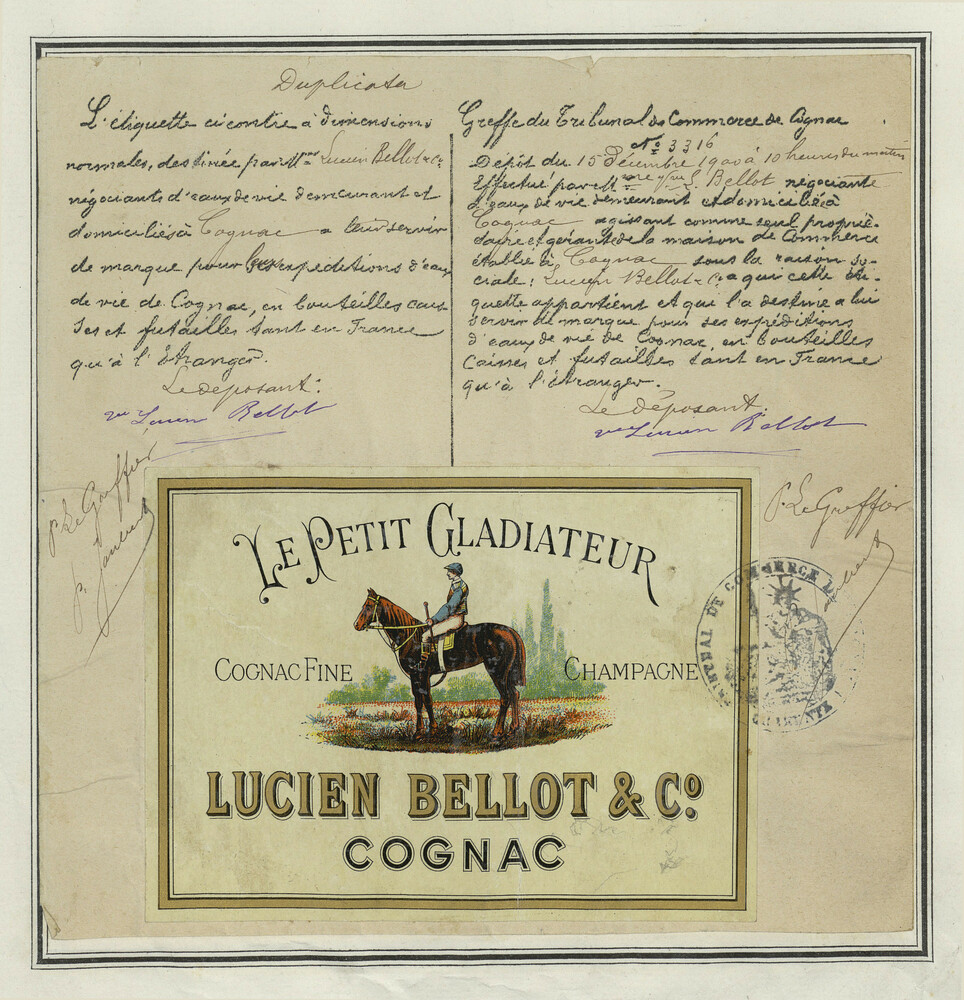 Duplicata
L'étiquette ci contre à dimensions
normales, destinée par Mme Lucien Bellot & Cie
négociants d'eaux de vie demeurant et
domiciliés à Cognac a leur servir
de marque pour les expéditions d'eaux
de vie de Cognac, en bouteilles cais
ses et futailles tant en France
qu'à l'Étranger.
Le déposant:
Vve Lucien Bellot
P. Le Greffier
Greffe du Tribunal de Commerce de Cognac
No 3316
Dépôt du 15 Décembre 1900 à 10 heures du matin
Effectué par Mme Vve L. Bellot négociante
d'eaux de vie demeurant et domiciliée à
Cognac agissant comme seul proprié-
taire et gérante de la maison de Commerce
établie à Cognac sous la raison so-
ciale: Lucien Bellot & Cie a qui cette éti-
quette appartient et qui l'a destinée a lui
servir de marque pour ses expéditions
d'eaux de vie de Cognac, en bouteilles
Caisses et futailles tant en France
qu'à l'étranger.
Le déposant.
Vve Lucien Bellot
P. Le Greffier
LE PETIT GLADIATEUR
COGNAC FINE CHAMPAGNE
LUCIEN BELLOT & Co.
COGNAC
TRIBUNAL DE COMMERCE
CHARENTE